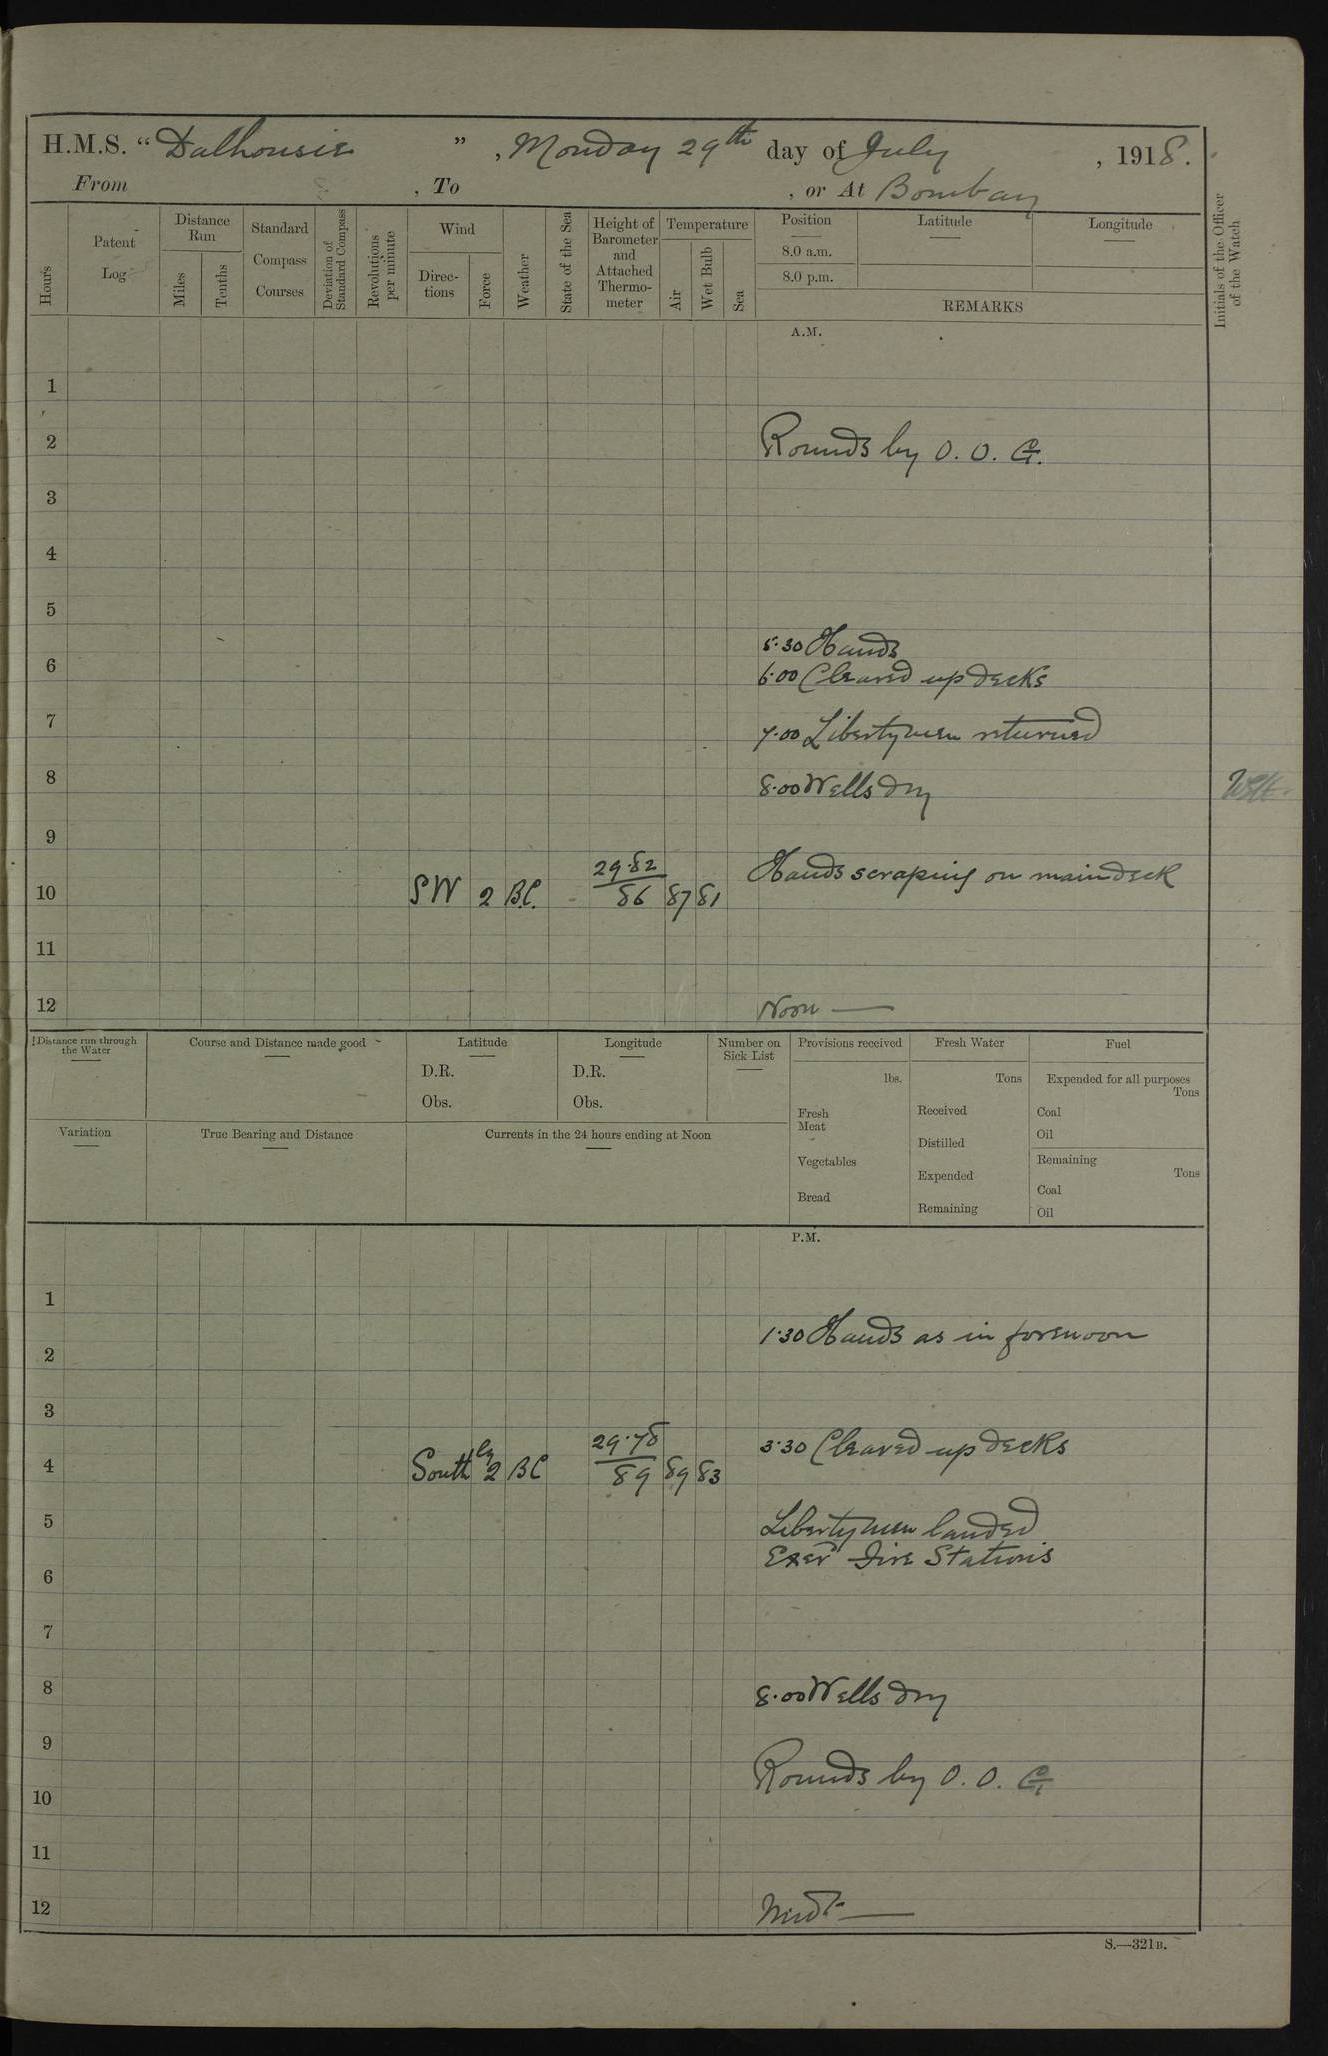 H.M.S. “Dalhousie”, Monday 29th day of July, 1918.
From , To , or At Bombay
Hours
Patent Log
Distance Run
Miles
Tenths
Standard Compass Courses
Deviation of Standard Compass
Revolutions per minute
Wind
Directions
Force
Weather
State of the Sea
Height of Barometer and Attached Thermometer
Temperature
Air
Wet Bulb
Sea
Position
8.0 a.m.
8.0 p.m.
Latitude
Longitude
REMARKS
Initials of the Officer of the Watch
A.M.
1
2 Rounds by O. O. G.
3
4
5
5·30 Hands
6 6·00 Cleared up decks
7 7·00 Libertymen returned
8 8·00 Wells dry
9
29·82 Hands scraping on maindeck
10 SW 2 B.C. - 86 87 81
11
12 Noon —
Distance run through the Water
Course and Distance made good
Latitude
D.R.
Obs.
Longitude
D.R.
Obs.
Number on Sick List
Provisions received
lbs.
Fresh Meat
Vegetables
Bread
Fresh Water
Tons
Received
Distilled
Expended
Remaining
Fuel
Expended for all purposes
Tons
Coal
Oil
Remaining
Tons
Coal
Oil
Variation
True Bearing and Distance
Currents in the 24 hours ending at Noon
P.M.
1
1·30 Hands as in forenoon
2
3
29·78 3·30 Cleared up decks
4 Southly 2 BC 89 89 83
5 Libertymen landed
Exerd Fire Stations
6
7
8 8·00 Wells dry
9
Rounds by O. O. G.
10
11
12 Midt —
S.—321B.